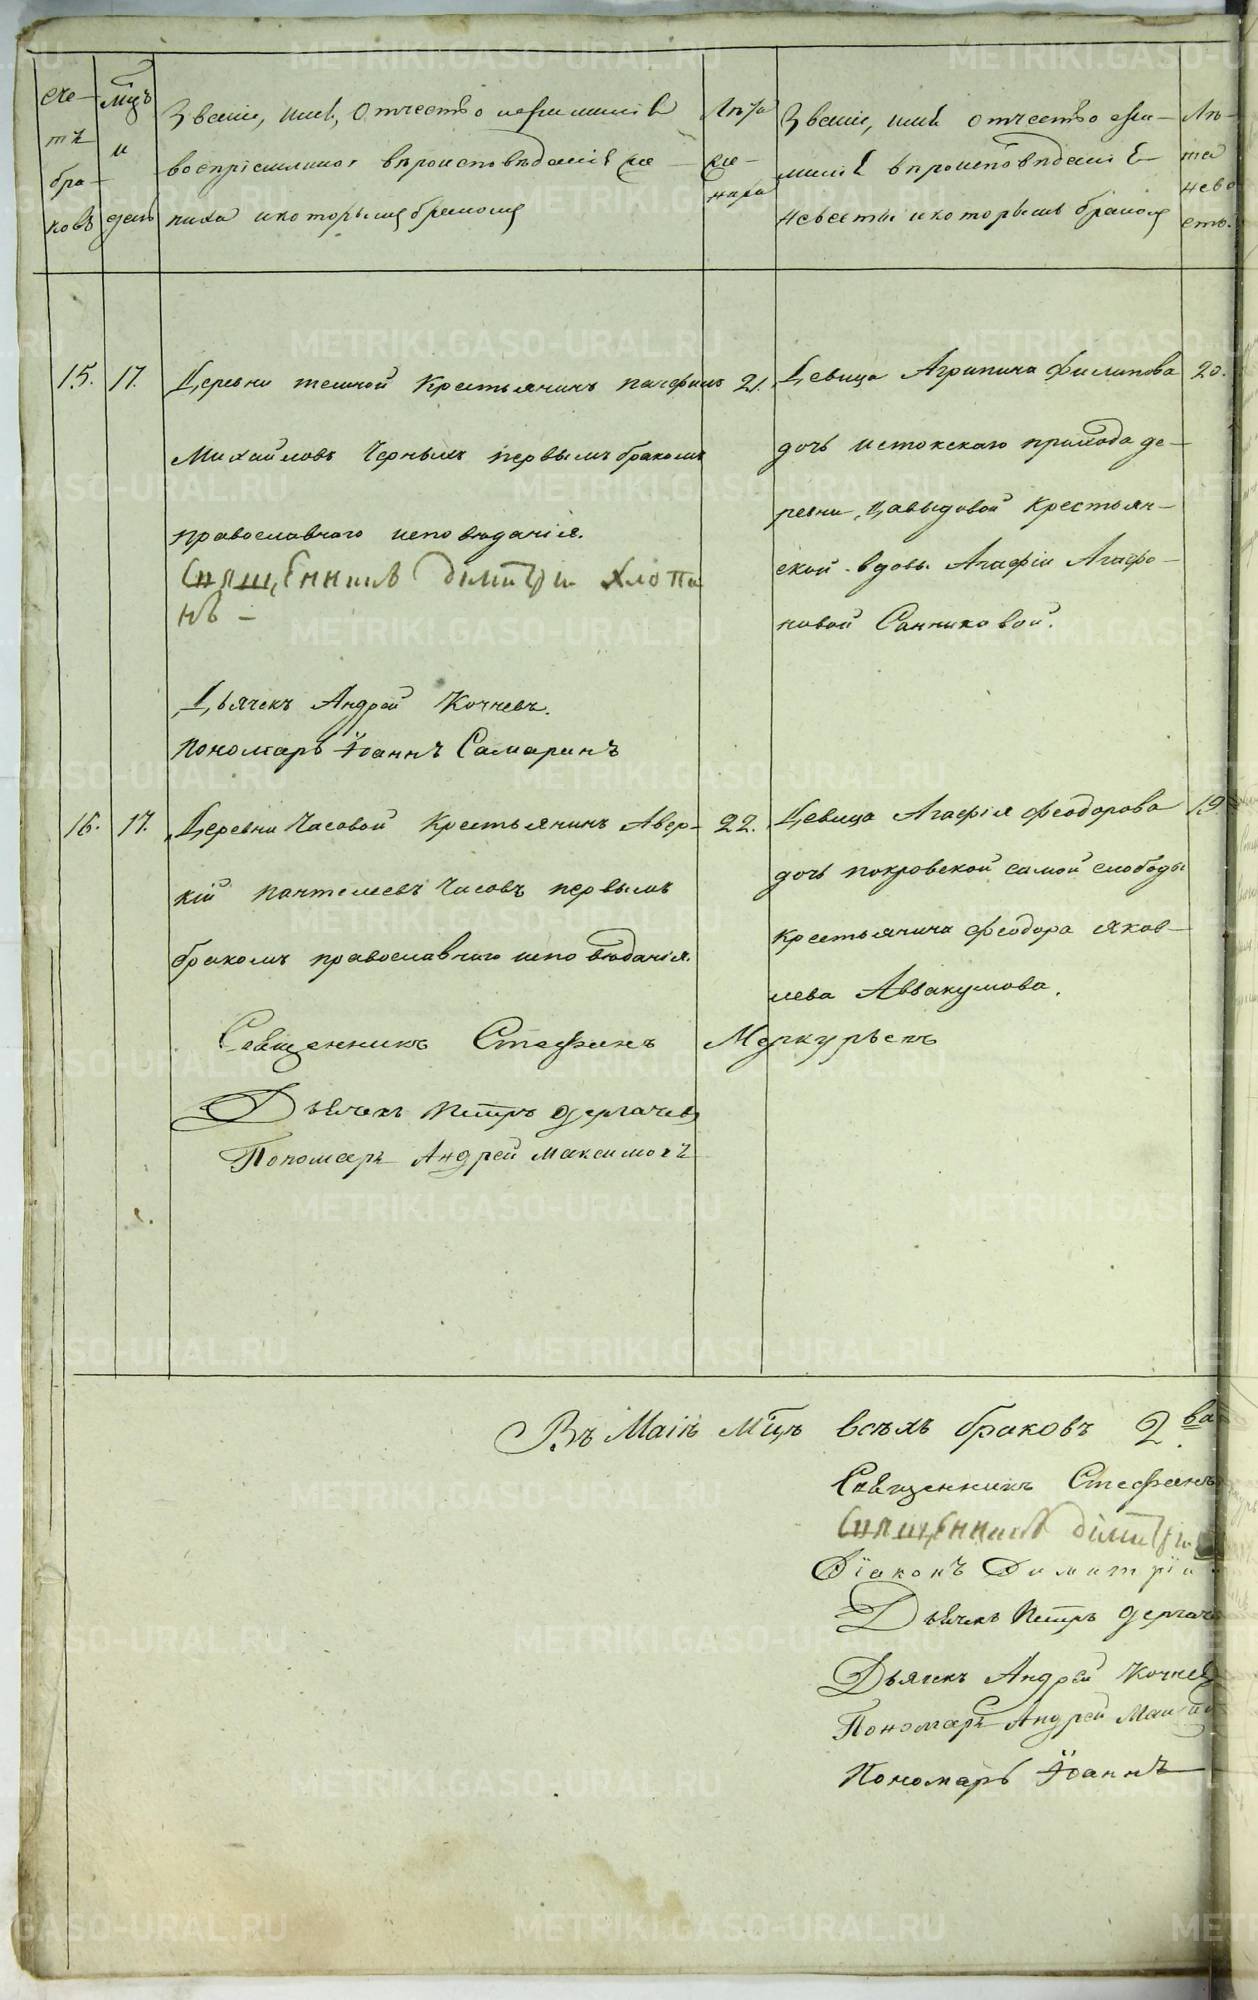 Сче-
тъ
бра-
ковъ
Мцъ
и
день
Званіе, имя, отчество и фамиліи
вѣроисповѣданіе же-
ниха и которымъ бракомъ
Лѣта
же-
ниха
Званіе, имя отчество фа-
миліи вѣроисповѣданіе
невѣсты и которымъ бракомъ
Лѣ-
та
неве
сты.
15.
17.
Деревни темной Крестьянинъ
Михайловъ Черныхъ первымъ бракомъ
православнаго исповѣданія.
Священникъ Димитрій Хлопи
нъ -
Дьячекъ Андрей Кочневъ.
Пономарь Іоаннъ Самаринъ
21.
Девица Агрипина Филипова
дочь истокскаго прихода де-
ревни Давыдовой Крестьян-
ской вдовы Агафіи Агафо-
новой Санниковой.
20.
16.
17.
Деревни Часовой Крестьянинъ Авер-
кій Пантелеевъ Часовъ первымъ
бракомъ православнаго исповѣданія.
Священникъ Стефанъ Меркурьевъ
Дьячекъ Петръ Дергачевъ
Пономарь Андрей Максимовъ
22.
Девица Агафія Феодорова
дочь покровской самой слободы
Крестьянина Феодора Яков-
лева Аввакумова.
19.
Въ Маіѣ Мцѣ всѣхъ браковъ 2 ва
Священникъ Стефанъ
Священникъ Димитрій
Діаконъ Димитрій
Дьячекъ Петръ Дергаче
Дьячекъ Андрей Кочнев
Пономарь Андрей Макси
Пономарь Іоаннъ
METRIKI.GASO-URAL.RU